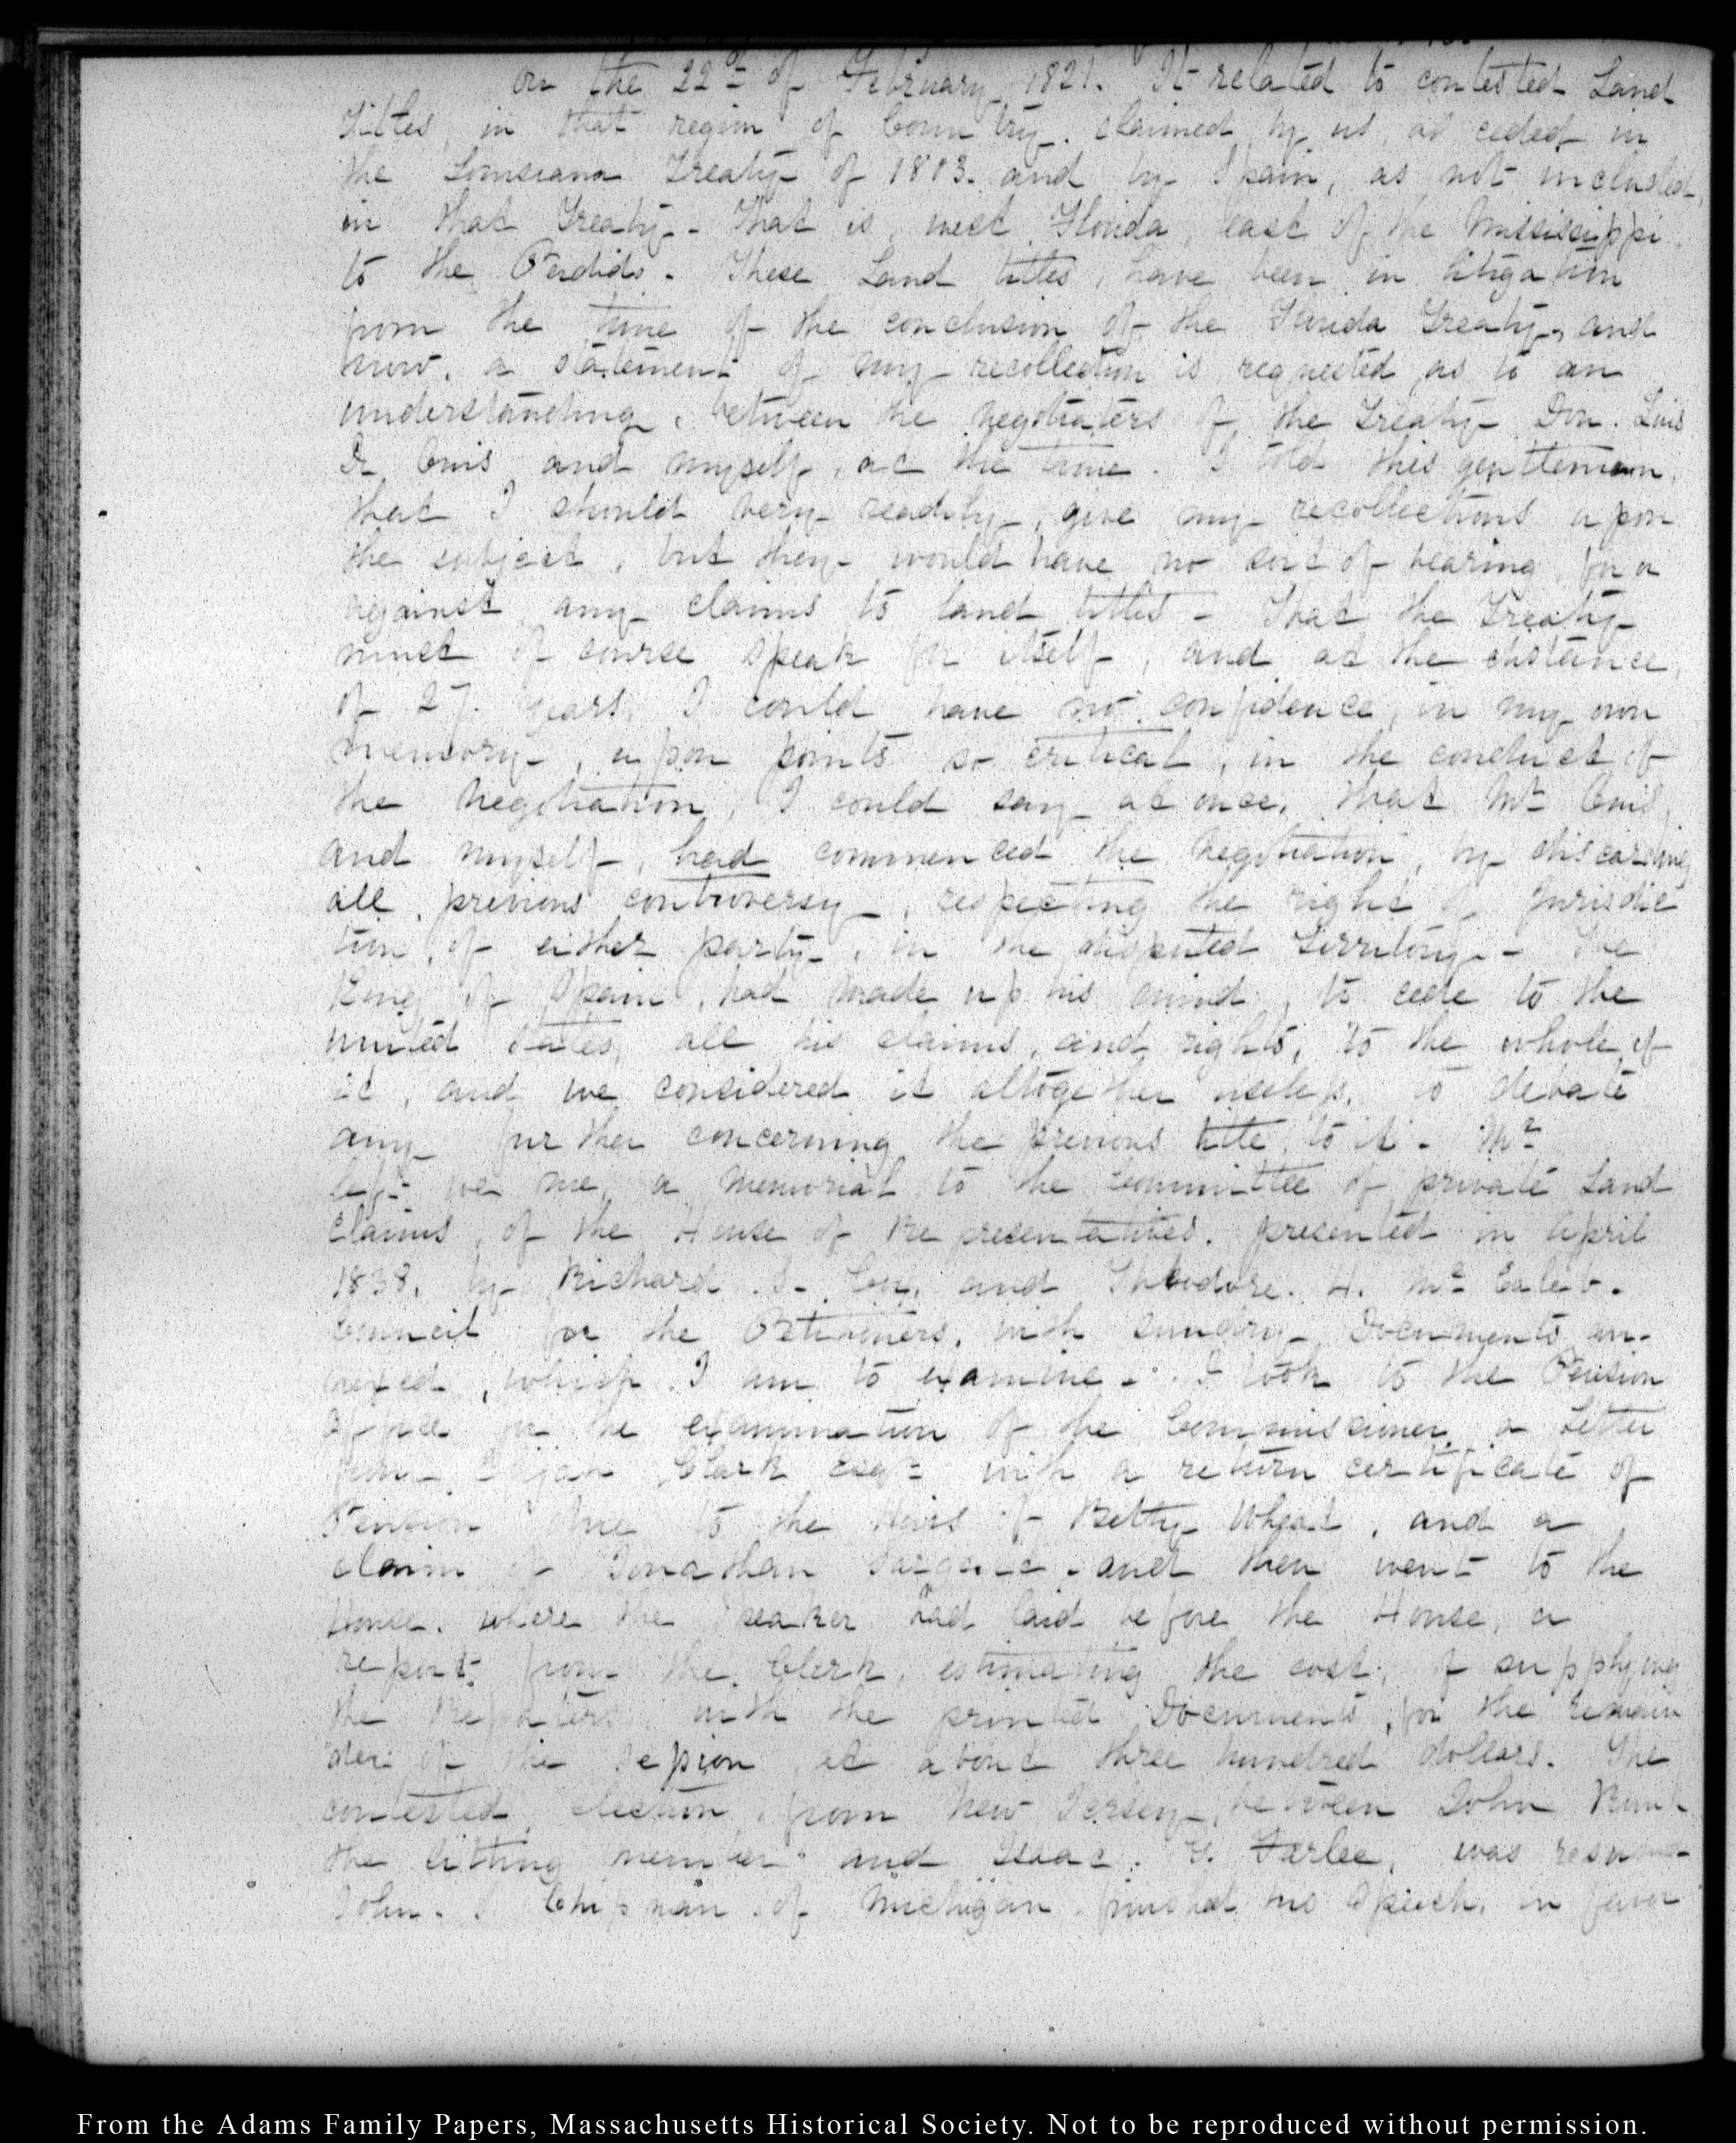 on the 22d. of February 1821. It related to contested Land
Titles, in that region of Country. claimed by us, as ceded in
the Louisiana Treaty of 1803. and by Spain, as not included,
in that Treaty- That is, west Florida, east of the Mississippi.
to the Perdido. These Land titles, have been in litigation
from the time of the conclusion of the Florida Treaty, and
now, a statement of my recollection is requested, as to an
understanding, between the negotiators of the Treaty- Don. Luis
De Onis and myself, at the time. I told this gentleman,
that I should very readily, give my recollections upon
the subject, but they would have no sort of bearing, for or
against any claims to land titles - That the Treaty
must of course speak for itself, and at the distance,
of 27. years, I could have no confidence, in my own
memory-, upon points so critical, in the conduct of
the negotiation, I could say at once, that Mr. Onis,
and myself, had commenced the negotiation, by discarding
all, previous controversy-, respecting the right of jurisdic
tion, of either party-, in the disputed territory- The
King of Spain, had made up his mind, to cede to the
united States, all his claims, and rights, to the whole of
it, and we considered it altogether useless, to debate
any further concerning the previous title to it. Mr.
left with me, a memorial to the committee of private Land
claims, of the House of Representatives. presented in April
1838. by Richard S. Coxe, and Theodore. H. Mc. Caleb.
Council for the Petitioners, with sundry- Documents an-
nexed, which I am to examine - I took to the Pension
office for the examination of the Commissioner, a Letter
from Clark Esqr. with a return certificate of
Pension due to the Heirs of Betty Wheat, and a
claim of Jonathan and then went to the
House. where the Speaker had laid before the House, a
report from the Clerk, estimating the cost, of supplying
the Reporters with the printed Documents, for the remain
der of the session at about three hundred dollars. The
contested, election, from New Jersey-, between John Runk
the sitting member and Isaac. G. Farlee, was resumed
John. S. Chipman of Michigan finished his Speech, in favor
From the Adams Family Papers, Massachusetts Historical Society. Not to be reproduced without permission.